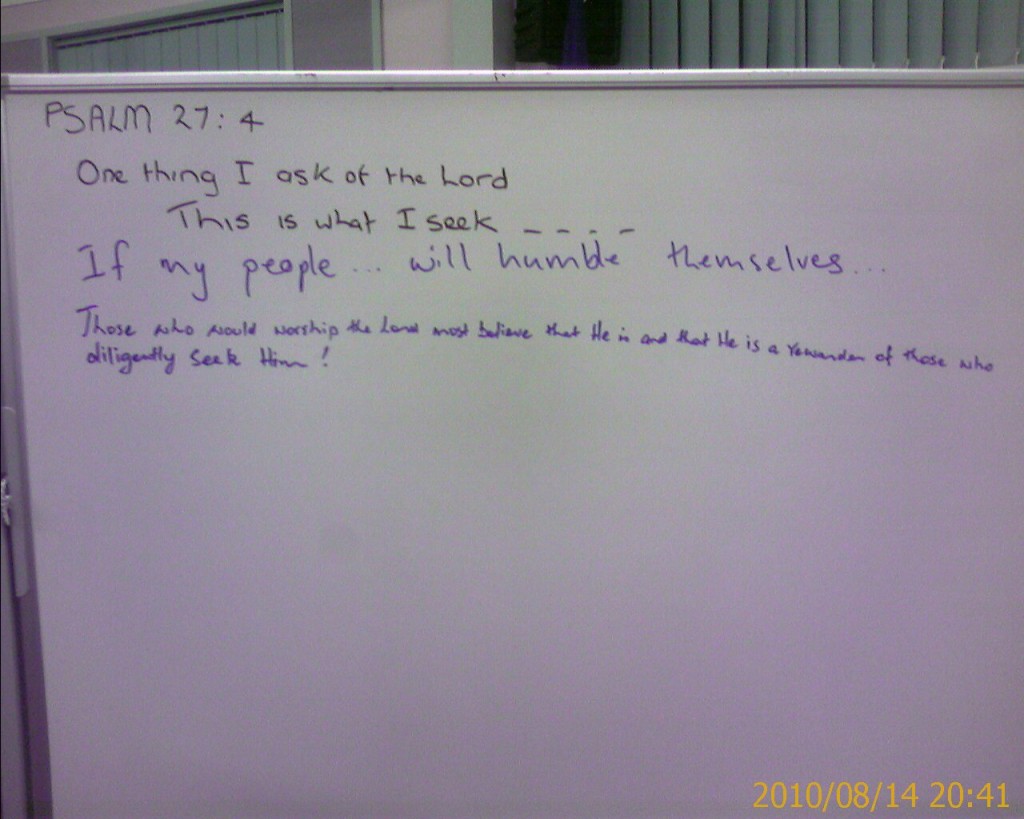 PSALM 27:4
One thing I ask of the Lord
This is what I seek _ _ _ _
If my people ... will humble themselves ...
Those who would worship the Lord most believe that He is and that He is a rewarder of those who
diligently seek Him!
2010/08/14 20:41